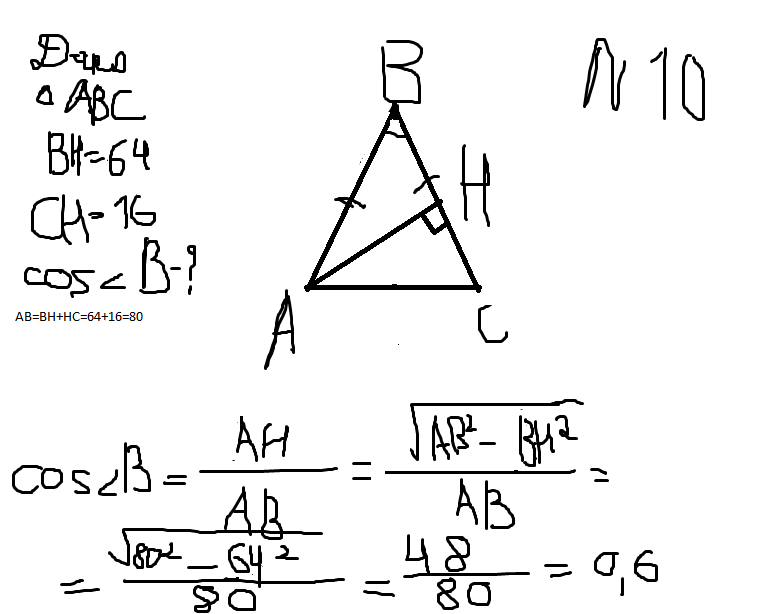 Дано
△ ABC
BH=64
CH=16
cos∠B-?
AB=BH+HC=64+16=80
N 10
B
H
A
C
cos∠B = AH/AB = √(AB² - BH²)/AB =
= √(80² - 64²)/80 = 48/80 = 0,6